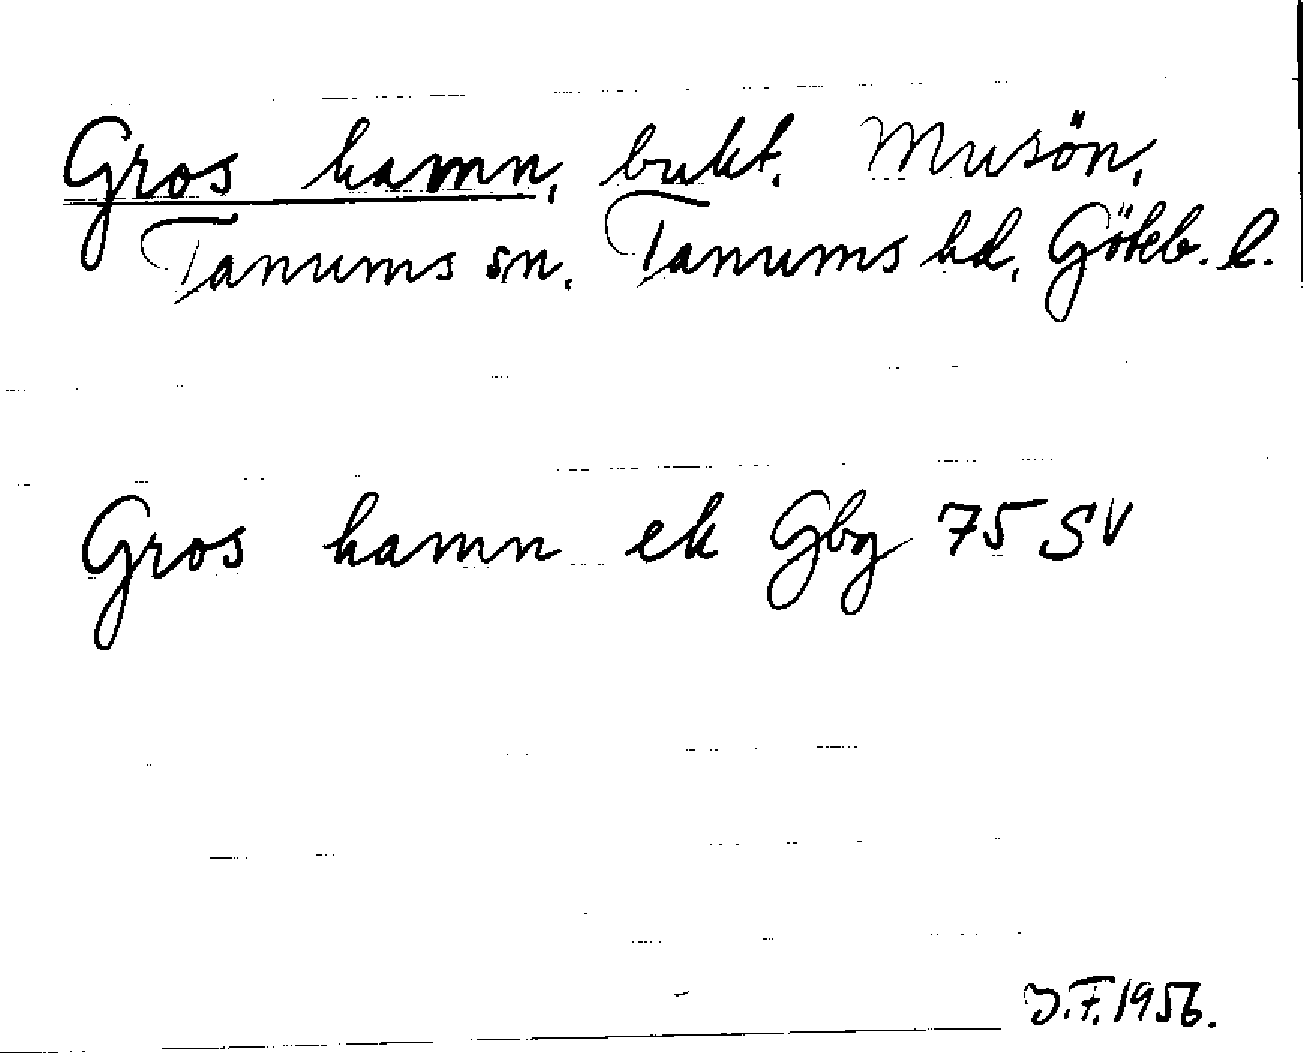 Gros hamn, bukt. Musön,
Tanums sn. Tanums hd, Göteb. l.
Gros hamn ek Gbg 75 SV
J.F. 1956.